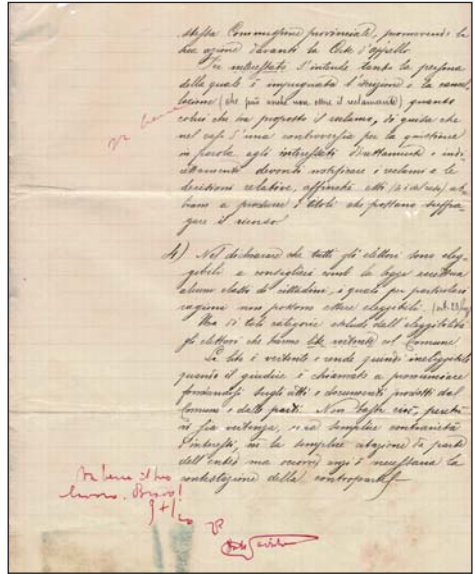 stessa Commissione provinciale, promuovendo la
sua azione davanti la Corte d'appello
Per interessato s'intende tanto la persona
della quale è impugnata l'iscrizione o la cancel-
lazione (che può anche non essere il reclamante) quanto
colui che ha proposto il reclamo, di guisa che
nel caso d'una controversia per la quistione
in parola agli interessati direttamente o indi-
rettamente devonsi notificare i reclami e le
decisioni relative, affinché essi ab-
biano a produrre i titoli che possano suffra-
gare il ricorso.
va bene
4) Nel dichiarare che tutti gli elettori sono eleg-
gibili a consiglieri com. la legge eccettua
alcune classi di cittadini, i quali per particolari
ragioni non possono essere eleggibili. (art. 23
Una di tali categorie esclude dall'eleggibilità
gli elettori che hanno lite vertente col Comune
La lite è vertente e rende quindi ineleggibile
quando il giudice è chiamato a pronunciare
fondandosi sugli atti e documenti prodotti dal
Comune e dalle parti. Non basta cioè, perché
vi sia vertenza, una semplice contrarietà
d'interessi, né la semplice citazione da parte
dell'ente, ma occorre anzi è necessaria la
contestazione della controparte
Va bene il suo
lavoro. Bravo!
9+/10